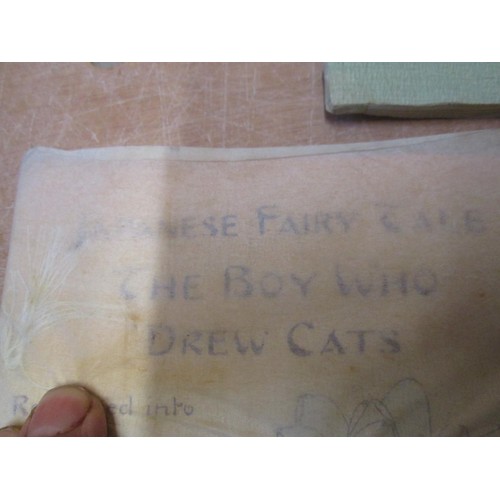 JAPANESE FAIRY TALE
THE BOY WHO
DREW CATS
into